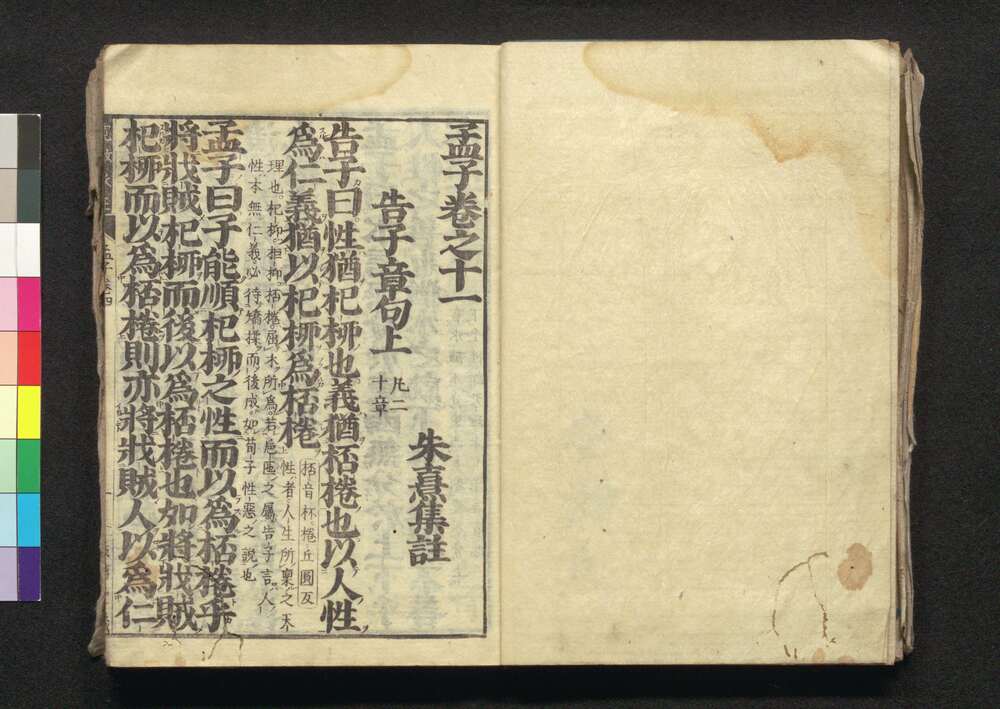 孟子卷之十一
朱熹集註
告子章句上 凡二
十章
告子曰性猶杞柳也義猶桮棬也以人性
爲仁義猶以杞柳爲桮棬 桮音杯棬丘圓反
性者人生所稟之天
理也杞柳柜柳桮棬屈木所爲若巵匜之屬告子言人
性本無仁義必待矯揉而後成如荀子性惡之說也
孟子曰子能順杞柳之性而以爲桮棬乎
將戕賊杞柳而後以爲桮棬也如將戕賊
杞柳而以爲桮棬則亦將戕賊人以爲仁